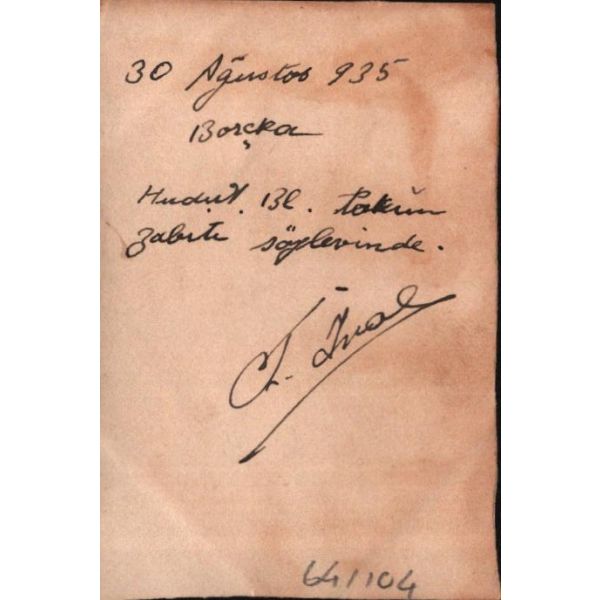 30 Ağustos 935
Borçka
Hudut. Bl. takım
zabıtı söylevinde.
64/104